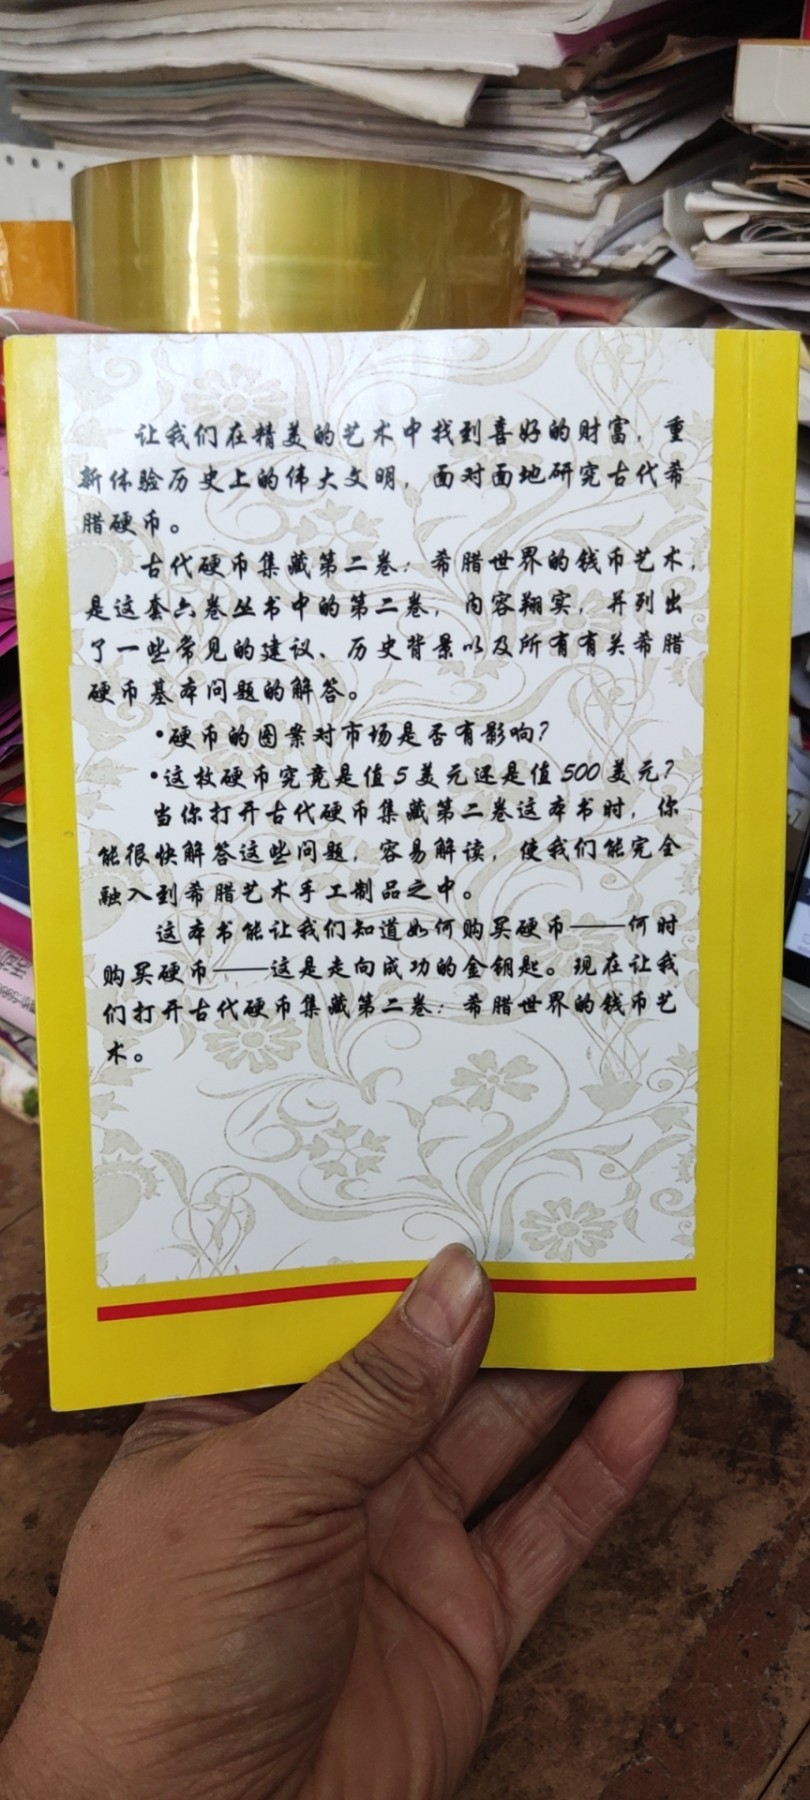 让我们在精美的艺术中找到喜好的财富，重
新体验历史上的伟大文明，面对面地研究古代希
腊硬币。
古代硬币集藏第二卷：希腊世界的钱币艺术，
是这套六卷丛书中的第二卷，内容翔实，并列出
了一些常见的建议、历史背景以及所有有关希腊
硬币基本问题的解答。
•硬币的图案对市场是否有影响？
•这枚硬币究竟是值5美元还是值500美元？
当你打开古代硬币集藏第二卷这本书时，你
能很快解答这些问题，容易解读，使我们能完全
融入到希腊艺术手工制品之中。
这本书能让我们知道如何购买硬币——何时
购买硬币——这是走向成功的金钥匙。现在让我
们打开古代硬币集藏第二卷：希腊世界的钱币艺
术。